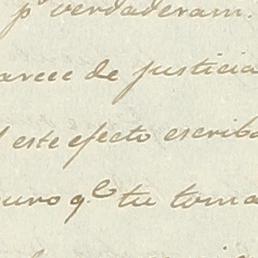 pr verdaderam.
arece de justicia
este efecto escriba
uro q.e tu toma